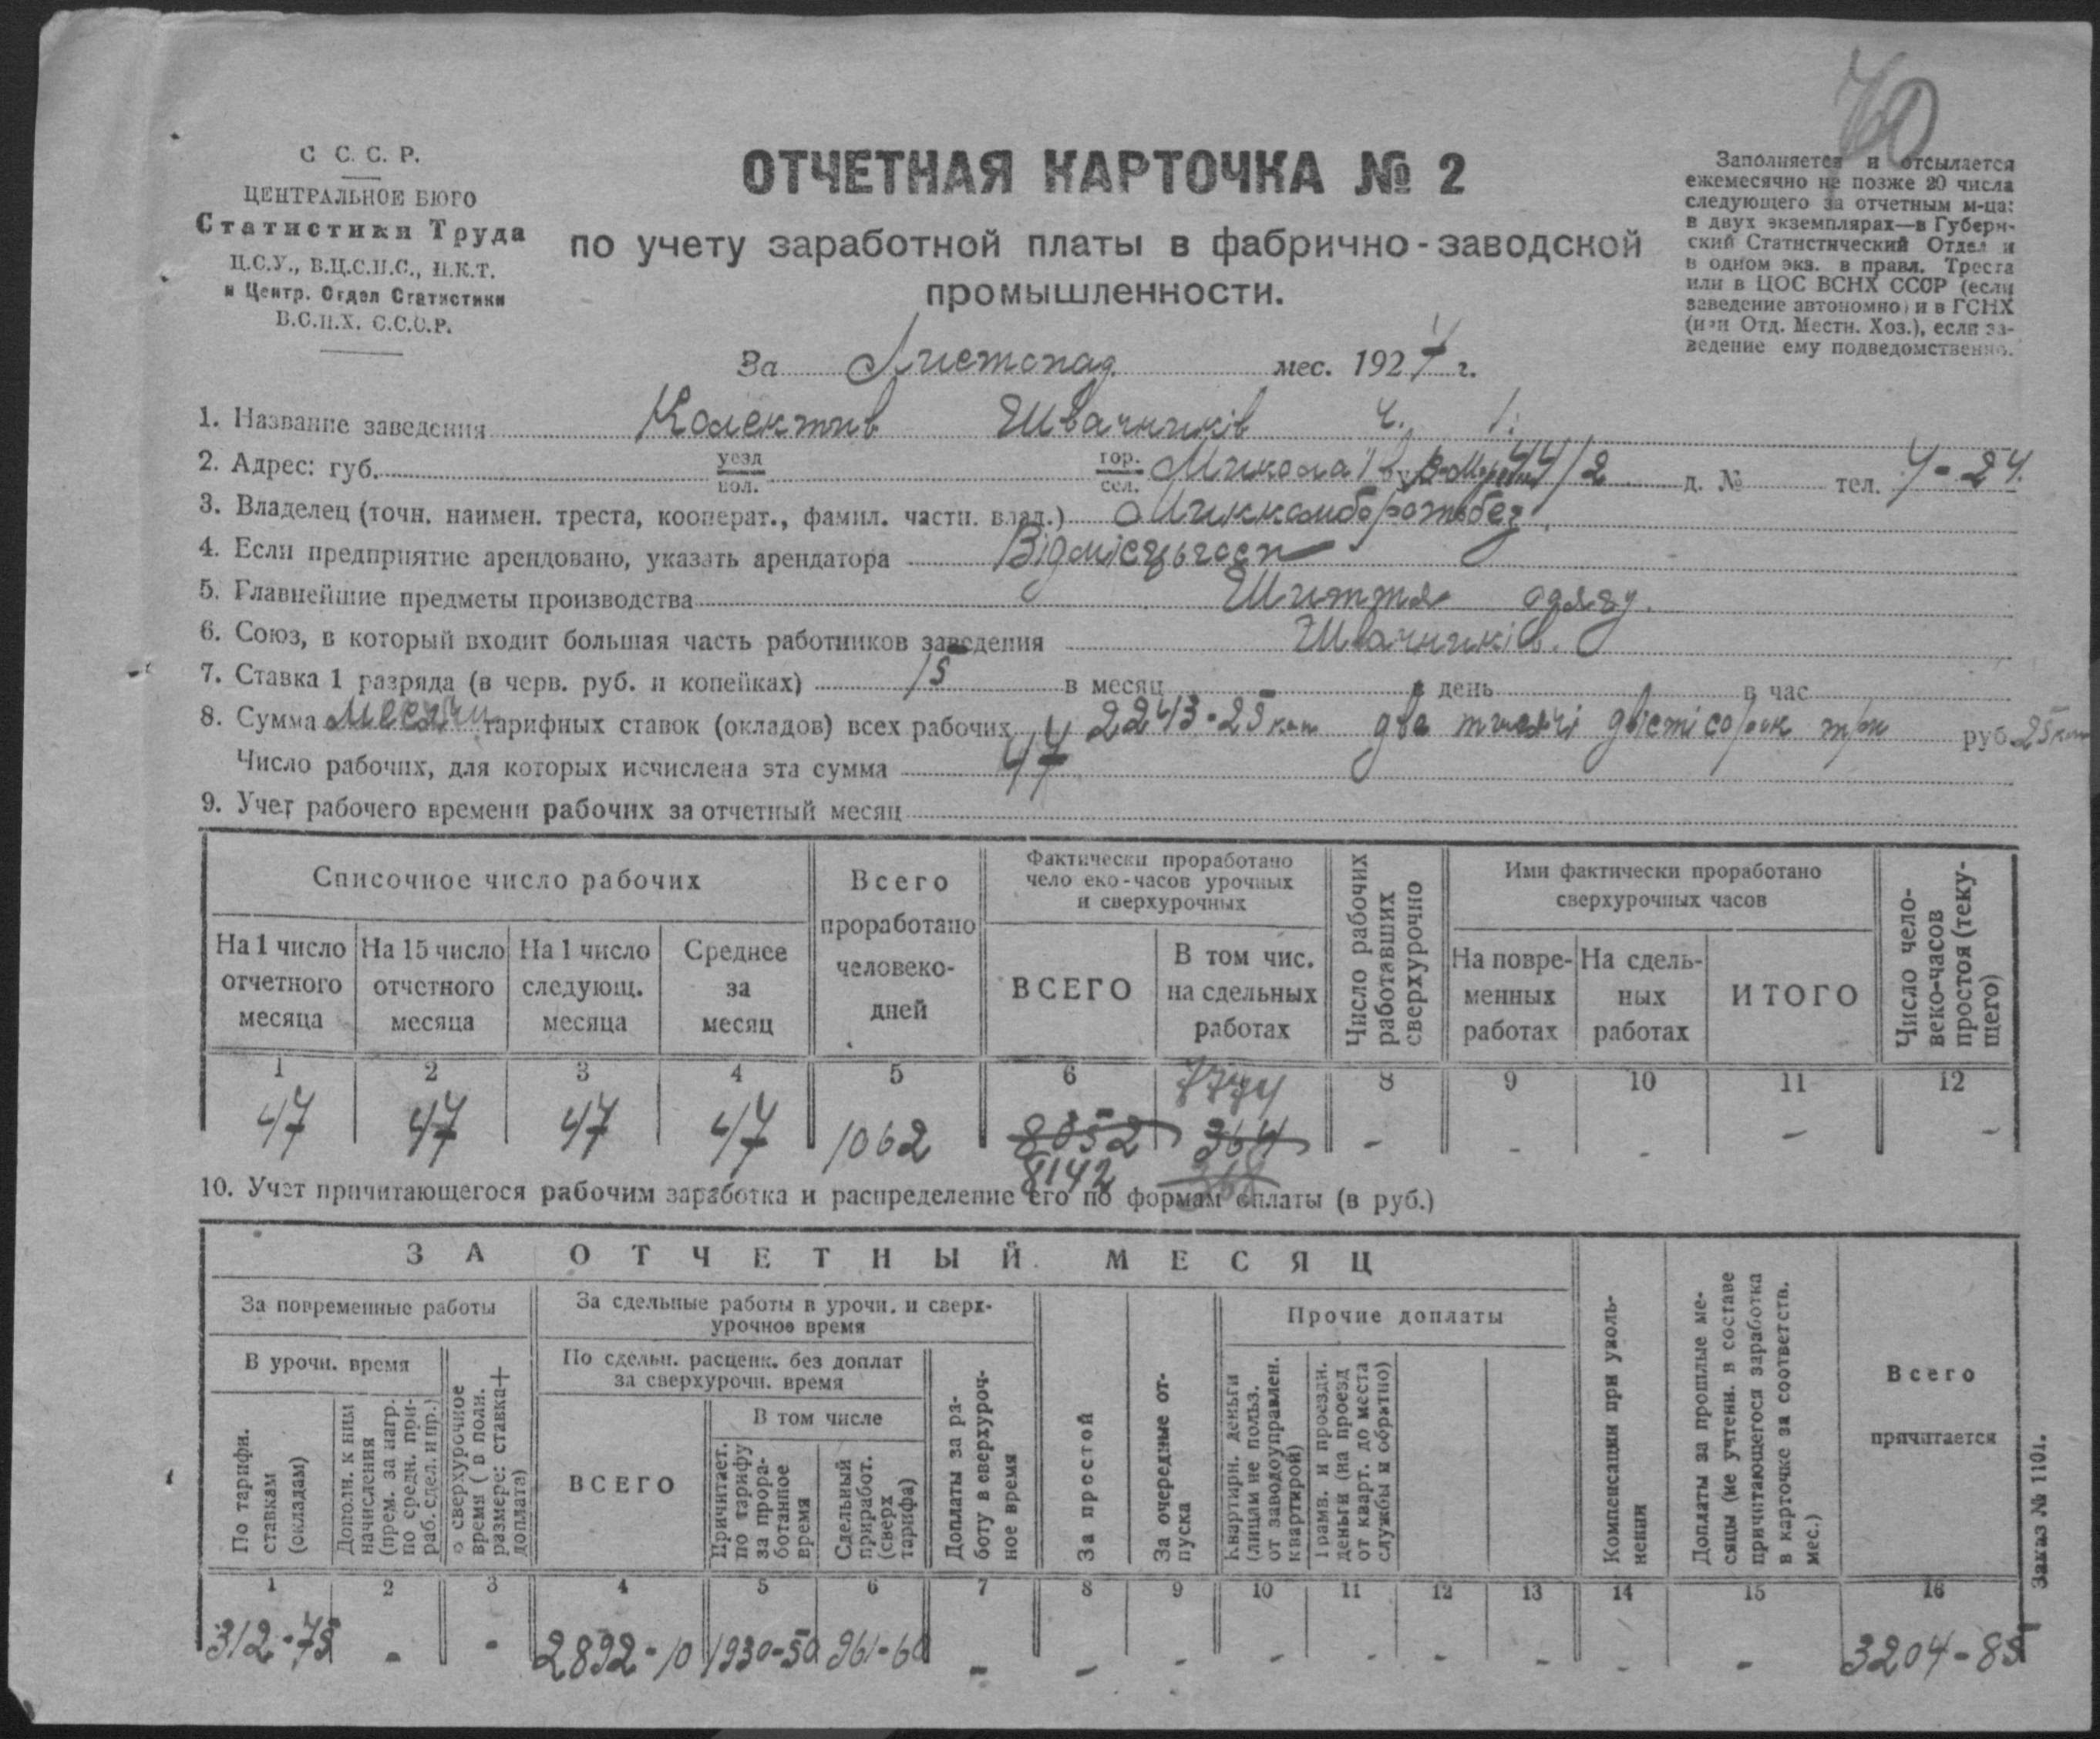 70
С С. С. Р.
ЦЕНТРАЛЬНОЕ БЮРО
Статистики Труда
Ц.С.У., В.Ц.С.П.С., Н.К.Т.
и Центр. Отдел Статистики
В.С.Н.Х. С.С.С.Р.
ОТЧЕТНАЯ КАРТОЧКА № 2
по учету заработной платы в фабрично-заводской
промышленности.
Заполняется и отсылается
ежемесячно не позже 20 числа
следующего за отчетным м-ца:
в двух экземплярах—в Губерн-
ский Статистический Отдел и
в одном экз. в правл. Треста
или в ЦОС ВСНХ СССР (если
заведение автономно) и в ГСНХ
(или Отд. Местн. Хоз.), если за-
ведение ему подведомственно.
За Листопад мес. 1924 г.
1. Название заведения Колектив Швачників Ч. 1.
2. Адрес: губ. уезд вол. гор. сел. Миколаїв 44/2 д. № тел. 4-24.
3. Владелец (точн. наимен. треста, кооперат., фамил. частн. влад.) Миккомборотьбез.
4. Если предприятие арендовано, указать арендатора Відмісцьгосп
5. Главнейшие предметы производства Шиття одягу.
6. Союз, в который входит большая часть работников заведения Швачників.
7. Ставка 1 разряда (в черв. руб. и копейках) 15 в месяц в день в час
8. Сумма месячн тарифных ставок (окладов) всех рабочих 2243-25 коп два тисячі двісті сорок три руб. 25 коп
Число рабочих, для которых исчислена эта сумма 47
9. Учет рабочего времени рабочих за отчетный месяц
Списочное число рабочих
На 1 число отчетного месяца
На 15 число отчетного месяца
На 1 число следующ. месяца
Среднее за месяц
Всего проработано человеко-дней
Фактически проработано
чело еко-часов урочных
и сверхурочных
ВСЕГО
В том чис. на сдельных работах
Число рабочих работавших сверхурочно
Ими фактически проработано
сверхурочных часов
На повре-менных работах
На сдель-ных работах
ИТОГО
Число чело-веко-часов простоя (теку-щего)
1 2 3 4 5 6 8 9 10 11 12
7774
47 47 47 47 1062 8352 364 - - - - -
8142 368
10. Учет причитающегося рабочим заработка и распределение его по формам оплаты (в руб.)
ЗА ОТЧЕТНЫЙ МЕСЯЦ
За повременные работы
В урочн. время
По тарифн. ставкам (окладам)
Дополн. к ним начисления (прем. за нагр. по средн. при-раб. сдел. и пр.)
сверхурочное время (в полн. размере: ставка+доплата)
За сдельные работы в урочн. и сверх-
урочное время
По сдельн. расценк. без доплат
за сверхурочн. время
ВСЕГО
В том числе
Причитает. по тарифу за прора-ботанное время
Сдельный приработ. (сверх тарифа)
Доплаты за ра-боту в сверхуроч-ное время
За простой
За очередные от-пуска
Прочие доплаты
Квартирн. деньги (лицам не польз. от заводоуправлен. квартирой)
Трамв. и проездн. деньги (на проезд от кварт. до места службы и обратно)
Компенсации при уволь-нении
Доплаты за прошлые ме-сяцы (не учтенн. в составе причитающегося заработка в карточке за соответств. мес.)
Всего причитается
1 2 3 4 5 6 7 8 9 10 11 12 13 14 15 16
312-75 - - 2892-10 1930-50 961-60 - - - - - - - - - 3204-85
Заказ № 1101.